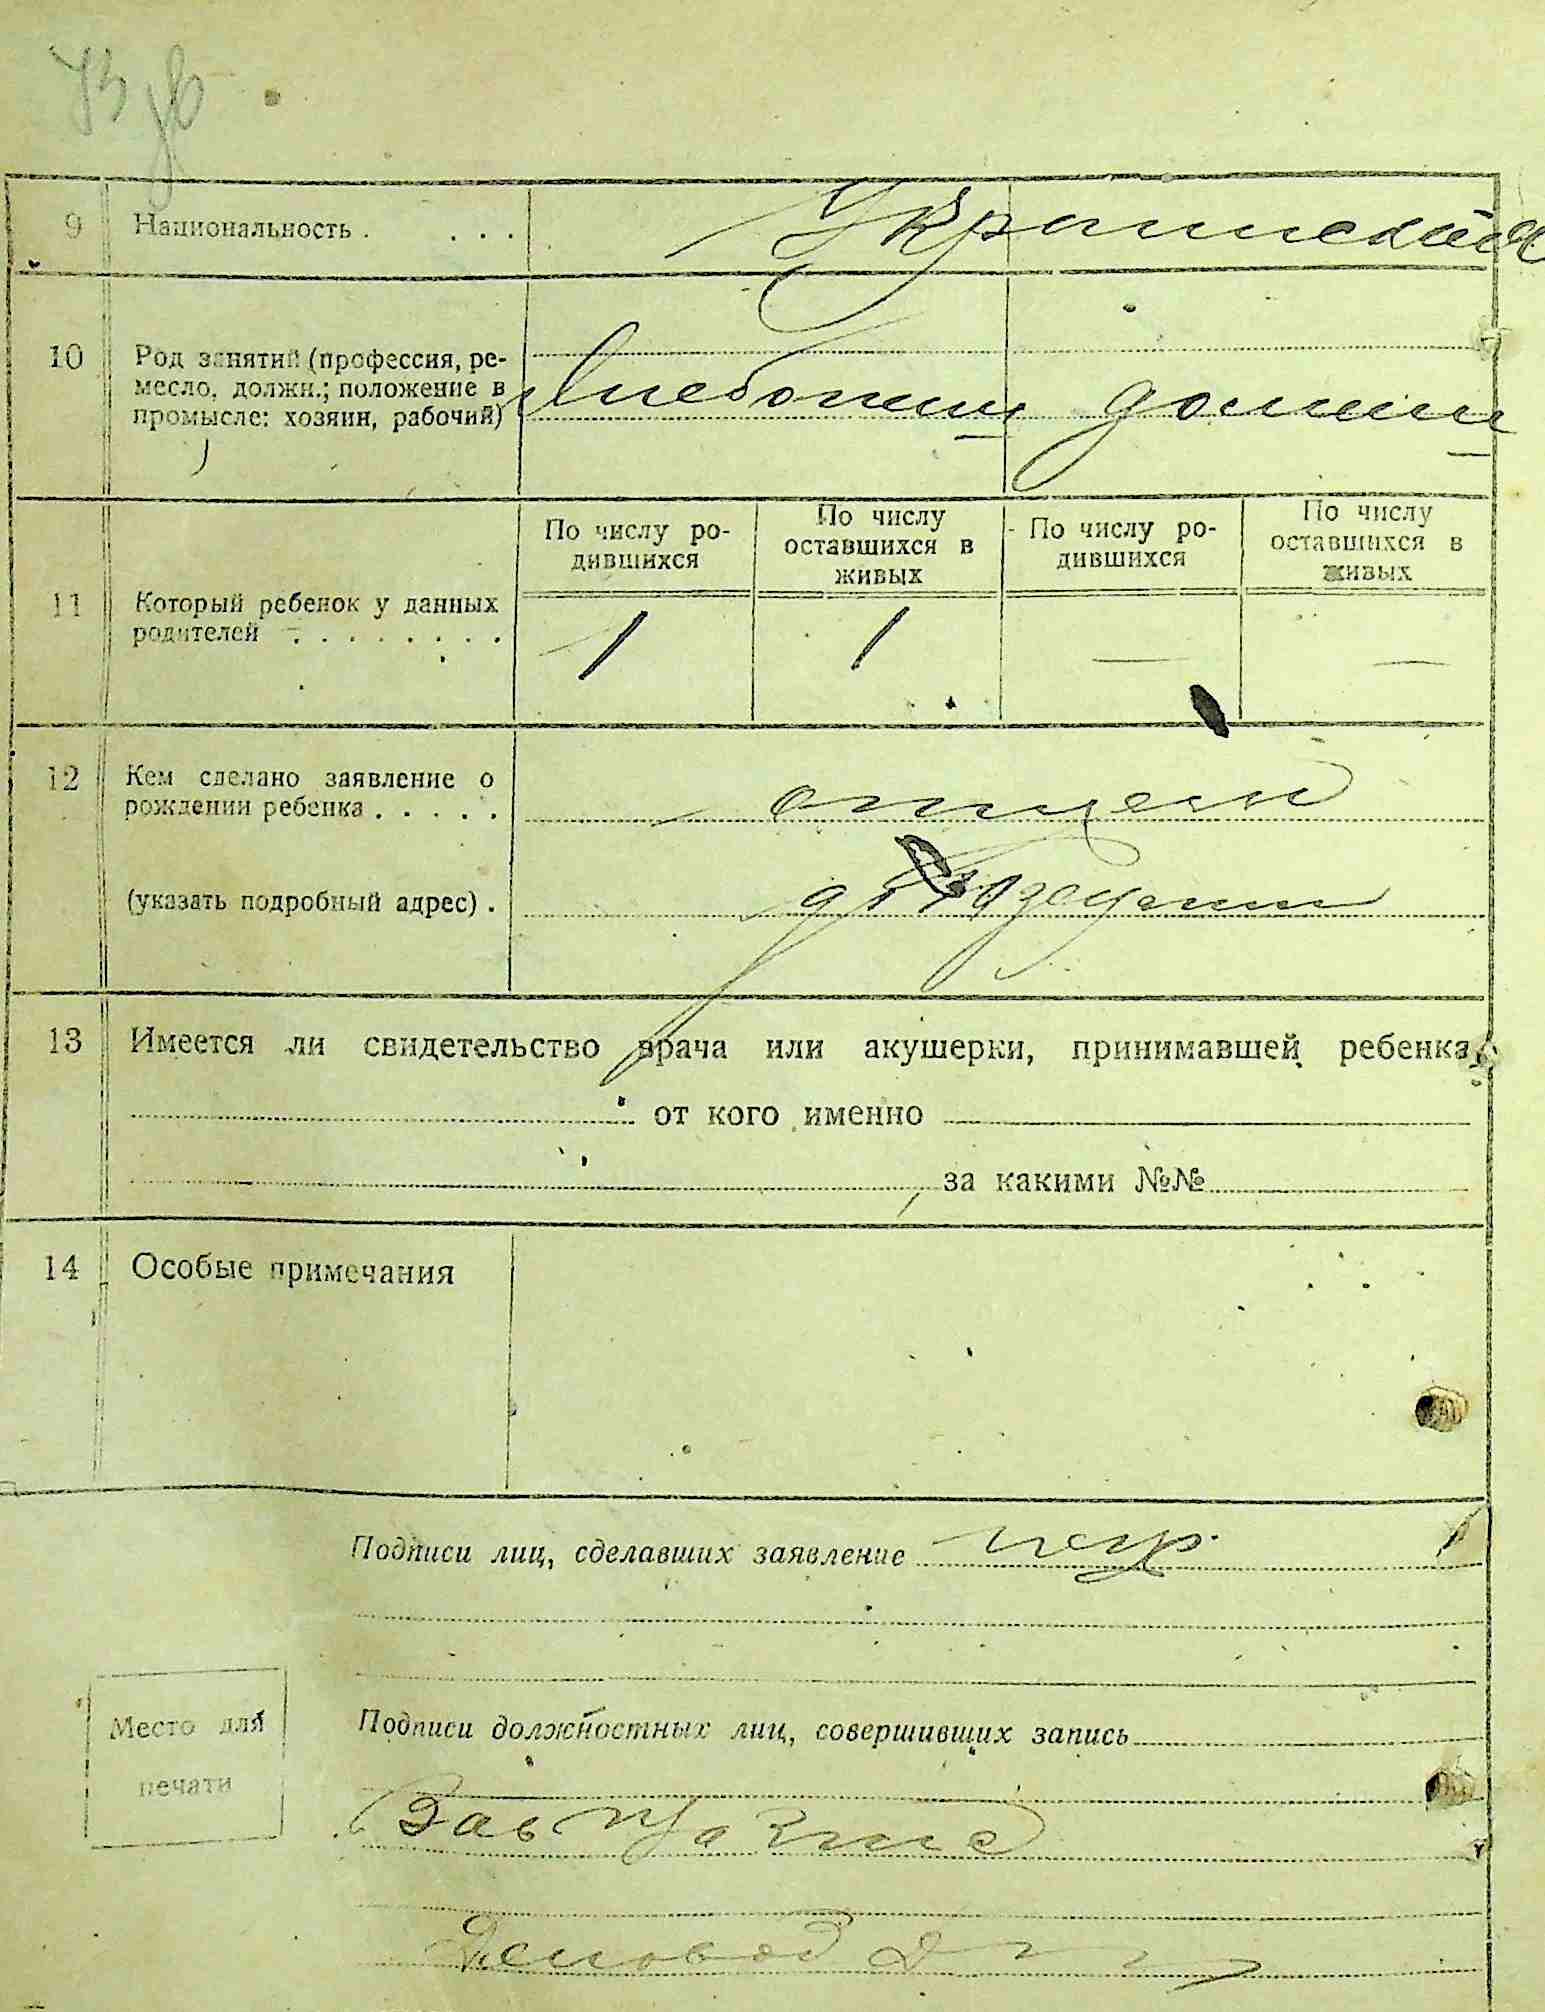 9 Национальность . . . . Украинская
10 Род занятий (профессия, ре-
месло, должн.; положение в
промысле: хозяин, рабочий)
По числу ро-
дившихся
По числу
оставшихся в
живых
По числу ро-
дившихся
По числу
оставшихся в
живых
11 Который ребенок у данных
родителей . . . . . . . .
1 1 — —
12 Кем сделано заявление о
рождении ребенка . . . . . отцем
(указать подробный адрес) .
13 Имеется ли свидетельство врача или акушерки, принимавшей ребенка,
от кого именно
за какими №№
14 Особые примечания
Подписи лиц, сделавших заявление
Место для
печати
Подписи должностных лиц, совершивших запись
Зав
Деловод